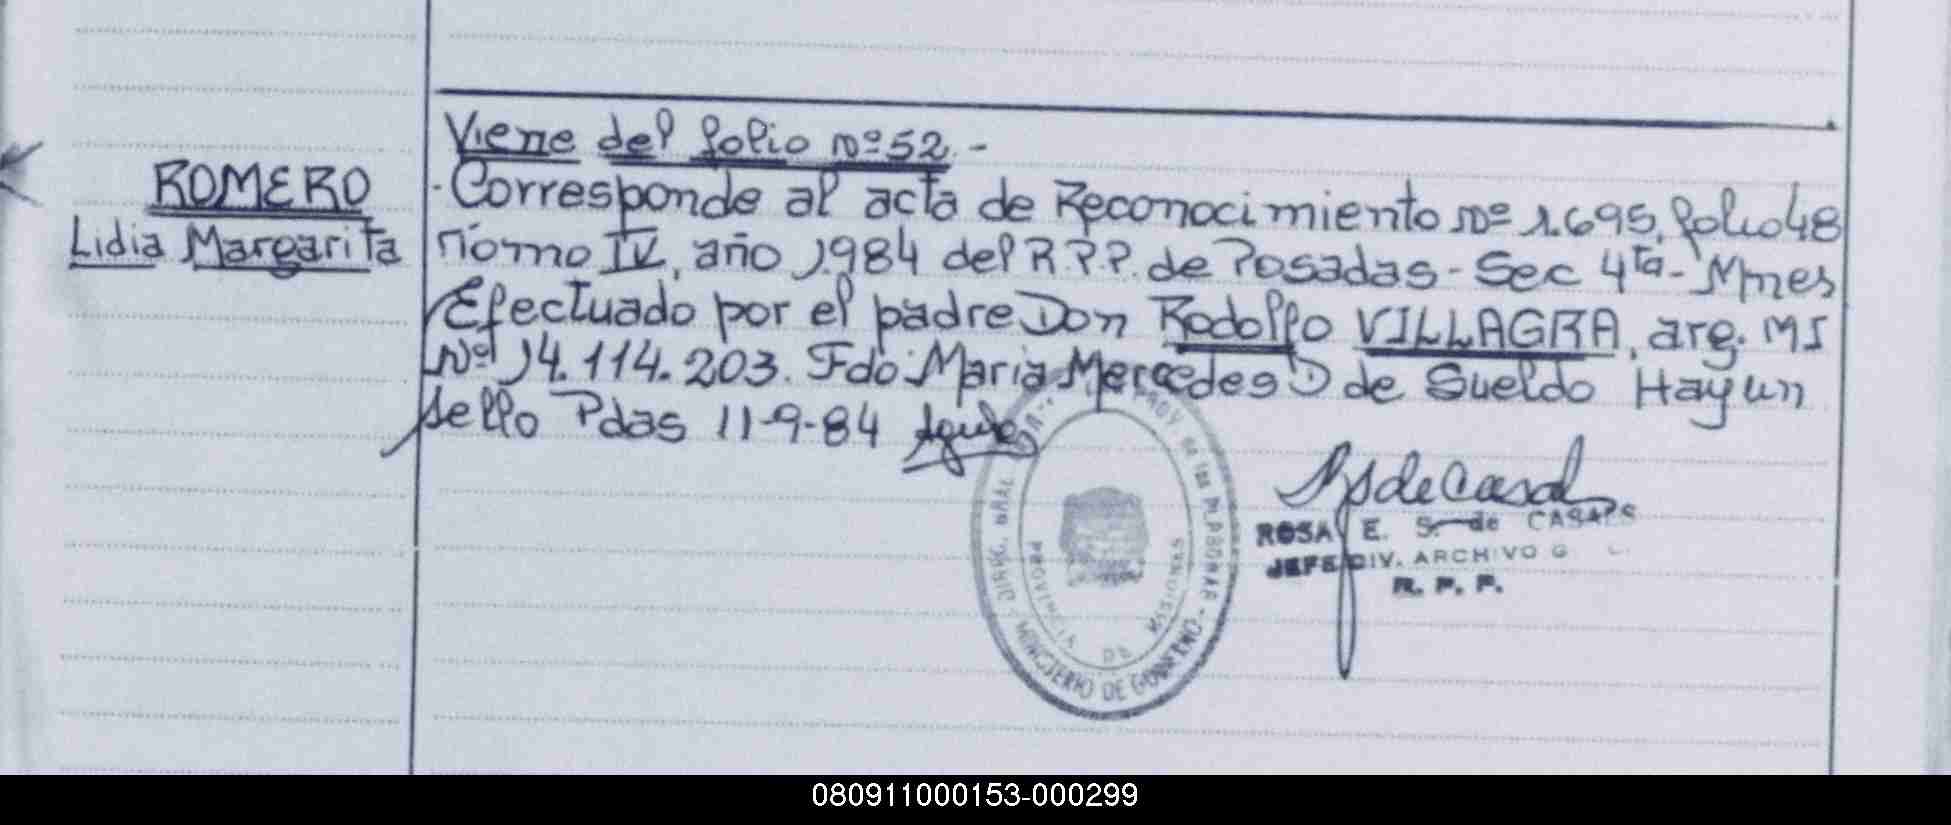 Viene del folio Nº 52.-
ROMERO
Lidia Margarita
-Corresponde al acta de Reconocimiento Nº 1.695, folio 48
Tomo IV, año 1.984 del R.P.P. de Posadas - Sec 4ta - Mnes
Efectuado por el padre Don Rodolfo VILLAGRA, arg. MI
Nº 14.114.203. Fdo: Maria Mercedes D de Sueldo Hay un
sello Pdas 11-9-84
MINISTERIO DE GOBIERNO
PROVINCIA DE MISIONES
ROSA E. S. de CASALS
JEFE DIV. ARCHIVO G
R. P. P.
080911000153-000299